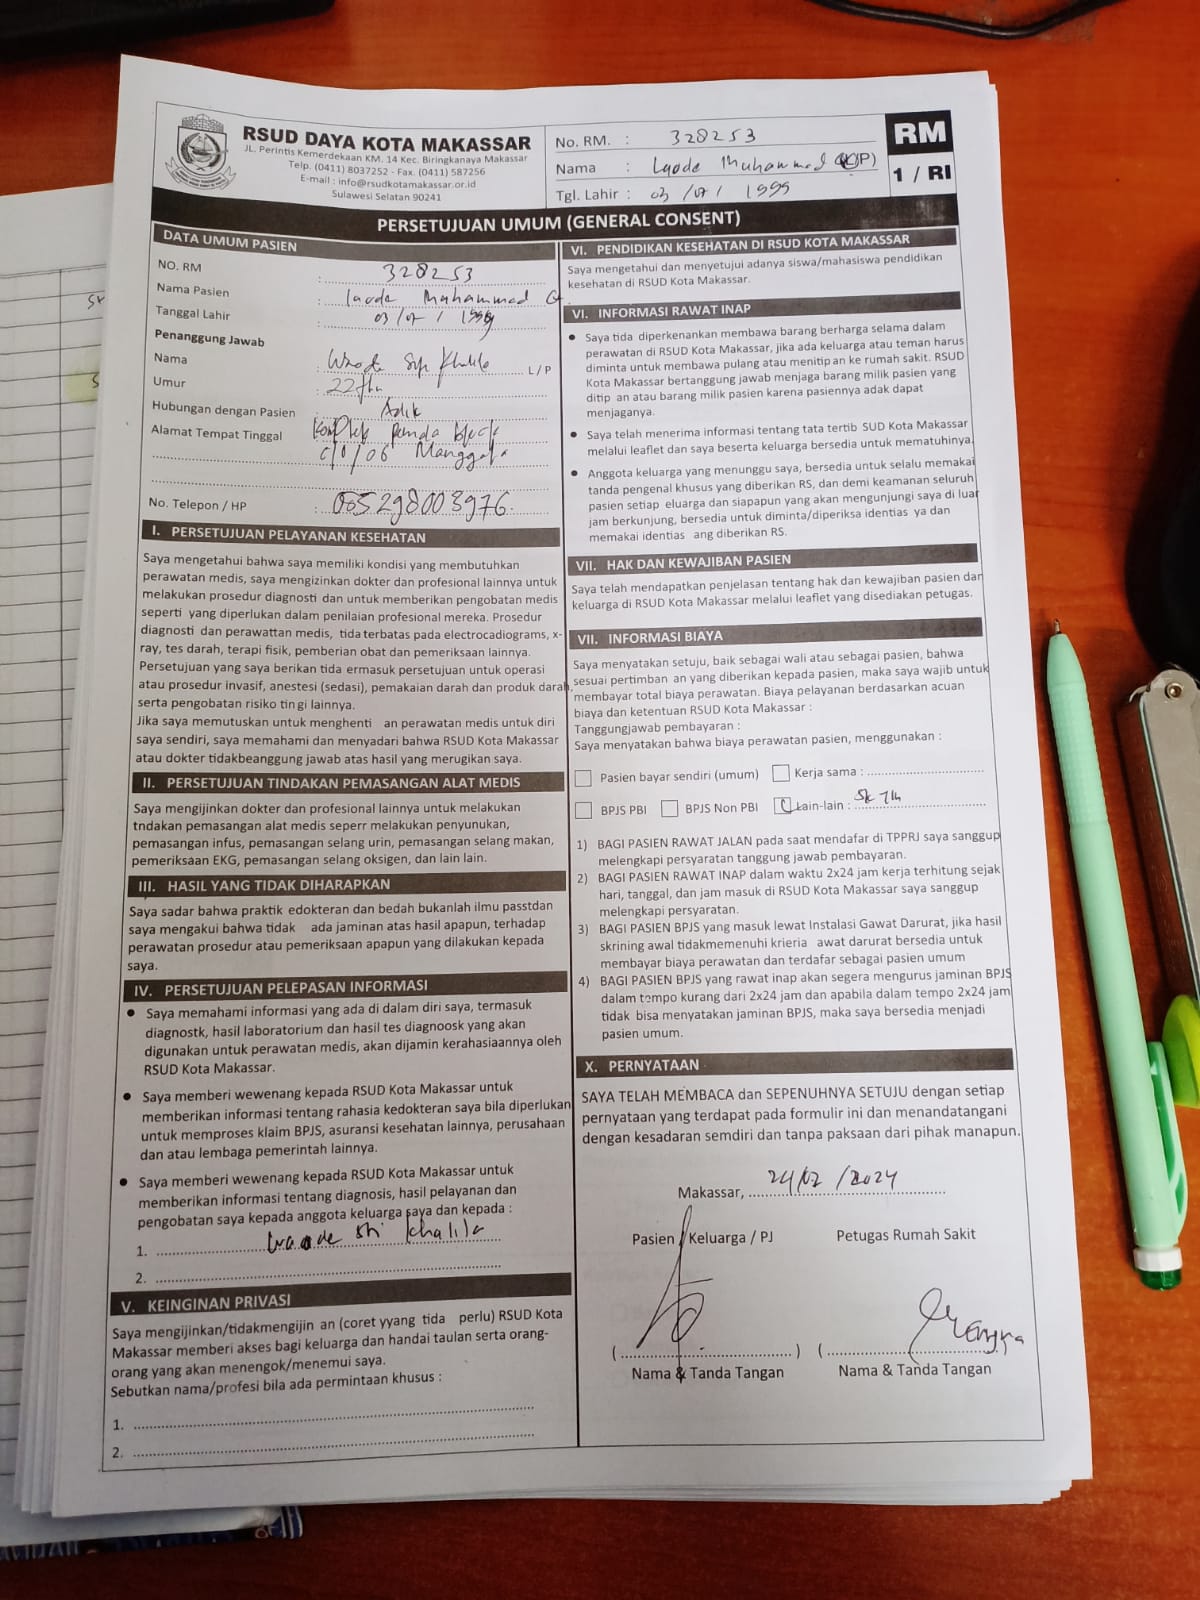 RSUD DAYA KOTA MAKASSAR
JL. Perintis Kemerdekaan KM. 14 Kec. Biringkanaya Makassar
Telp. (0411) 8037252 - Fax. (0411) 587256
E-mail : info@rsudkotamakassar.or.id
Sulawesi Selatan 90241
No. RM. : 328253
Nama : Laode Muhammad P)
Tgl. Lahir : 03 / 07 / 1999
RM
1 / RI
PERSETUJUAN UMUM (GENERAL CONSENT)
DATA UMUM PASIEN
NO. RM : 328253
Nama Pasien : Laode Muhammad G
Tanggal Lahir : 03 / 07 / 1999
Penanggung Jawab
Nama : Waode L/P
Umur : 22 thn
Hubungan dengan Pasien : Adik
Alamat Tempat Tinggal : Komplek
Manggala
No. Telepon / HP : 085298003976
I. PERSETUJUAN PELAYANAN KESEHATAN
Saya mengetahui bahwa saya memiliki kondisi yang membutuhkan
perawatan medis, saya mengizinkan dokter dan profesional lainnya untuk
melakukan prosedur diagnosti dan untuk memberikan pengobatan medis
seperti yang diperlukan dalam penilaian profesional mereka. Prosedur
diagnosti dan perawattan medis, tida terbatas pada electrocadiograms, x-
ray, tes darah, terapi fisik, pemberian obat dan pemeriksaan lainnya.
Persetujuan yang saya berikan tida ermasuk persetujuan untuk operasi
atau prosedur invasif, anestesi (sedasi), pemakaian darah dan produk darah,
serta pengobatan risiko tin gi lainnya.
Jika saya memutuskan untuk menghenti an perawatan medis untuk diri
saya sendiri, saya memahami dan menyadari bahwa RSUD Kota Makassar
atau dokter tidakbeanggung jawab atas hasil yang merugikan saya.
II. PERSETUJUAN TINDAKAN PEMASANGAN ALAT MEDIS
Saya mengijinkan dokter dan profesional lainnya untuk melakukan
tndakan pemasangan alat medis seperr melakukan penyunukan,
pemasangan infus, pemasangan selang urin, pemasangan selang makan,
pemeriksaan EKG, pemasangan selang oksigen, dan lain lain.
III. HASIL YANG TIDAK DIHARAPKAN
Saya sadar bahwa praktik edokteran dan bedah bukanlah ilmu passtdan
saya mengakui bahwa tidak ada jaminan atas hasil apapun, terhadap
perawatan prosedur atau pemeriksaan apapun yang dilakukan kepada
saya.
IV. PERSETUJUAN PELEPASAN INFORMASI
• Saya memahami informasi yang ada di dalam diri saya, termasuk
diagnostk, hasil laboratorium dan hasil tes diagnoosk yang akan
digunakan untuk perawatan medis, akan dijamin kerahasiaannya oleh
RSUD Kota Makassar.
• Saya memberi wewenang kepada RSUD Kota Makassar untuk
memberikan informasi tentang rahasia kedokteran saya bila diperlukan
untuk memproses klaim BPJS, asuransi kesehatan lainnya, perusahaan
dan atau lembaga pemerintah lainnya.
• Saya memberi wewenang kepada RSUD Kota Makassar untuk
memberikan informasi tentang diagnosis, hasil pelayanan dan
pengobatan saya kepada anggota keluarga saya dan kepada :
1. Waode Sti Khalila
2.
V. KEINGINAN PRIVASI
Saya mengijinkan/tidakmengijin an (coret yyang tida perlu) RSUD Kota
Makassar memberi akses bagi keluarga dan handai taulan serta orang-
orang yang akan menengok/menemui saya.
Sebutkan nama/profesi bila ada permintaan khusus :
1.
2.
VI. PENDIDIKAN KESEHATAN DI RSUD KOTA MAKASSAR
Saya mengetahui dan menyetujui adanya siswa/mahasiswa pendidikan
kesehatan di RSUD Kota Makassar.
VI. INFORMASI RAWAT INAP
• Saya tida diperkenankan membawa barang berharga selama dalam
perawatan di RSUD Kota Makassar, jika ada keluarga atau teman harus
diminta untuk membawa pulang atau menitip an ke rumah sakit. RSUD
Kota Makassar bertanggung jawab menjaga barang milik pasien yang
ditip an atau barang milik pasien karena pasiennya adak dapat
menjaganya.
• Saya telah menerima informasi tentang tata tertib SUD Kota Makassar
melalui leaflet dan saya beserta keluarga bersedia untuk mematuhinya.
• Anggota keluarga yang menunggu saya, bersedia untuk selalu memakai
tanda pengenal khusus yang diberikan RS, dan demi keamanan seluruh
pasien setiap eluarga dan siapapun yang akan mengunjungi saya di luar
jam berkunjung, bersedia untuk diminta/diperiksa identias ya dan
memakai identias ang diberikan RS.
VII. HAK DAN KEWAJIBAN PASIEN
Saya telah mendapatkan penjelasan tentang hak dan kewajiban pasien dar
keluarga di RSUD Kota Makassar melalui leaflet yang disediakan petugas.
VII. INFORMASI BIAYA
Saya menyatakan setuju, baik sebagai wali atau sebagai pasien, bahwa
sesuai pertimban an yang diberikan kepada pasien, maka saya wajib untuk
membayar total biaya perawatan. Biaya pelayanan berdasarkan acuan
biaya dan ketentuan RSUD Kota Makassar :
Tanggungjawab pembayaran :
Saya menyatakan bahwa biaya perawatan pasien, menggunakan :
Pasien bayar sendiri (umum) Kerja sama :
BPJS PBI BPJS Non PBI Lain-lain :
1) BAGI PASIEN RAWAT JALAN pada saat mendafar di TPPRJ saya sanggup
melengkapi persyaratan tanggung jawab pembayaran.
2) BAGI PASIEN RAWAT INAP dalam waktu 2x24 jam kerja terhitung sejak
hari, tanggal, dan jam masuk di RSUD Kota Makassar saya sanggup
melengkapi persyaratan.
3) BAGI PASIEN BPJS yang masuk lewat Instalasi Gawat Darurat, jika hasil
skrining awal tidakmemenuhi krieria awat darurat bersedia untuk
membayar biaya perawatan dan terdafar sebagai pasien umum
4) BAGI PASIEN BPJS yang rawat inap akan segera mengurus jaminan BPJS
dalam tempo kurang dari 2x24 jam dan apabila dalam tempo 2x24 jam
tidak bisa menyatakan jaminan BPJS, maka saya bersedia menjadi
pasien umum.
X. PERNYATAAN
SAYA TELAH MEMBACA dan SEPENUHNYA SETUJU dengan setiap
pernyataan yang terdapat pada formulir ini dan menandatangani
dengan kesadaran semdiri dan tanpa paksaan dari pihak manapun.
Makassar, 24/02/2024
Pasien / Keluarga / PJ Petugas Rumah Sakit
Nama & Tanda Tangan Nama & Tanda Tangan